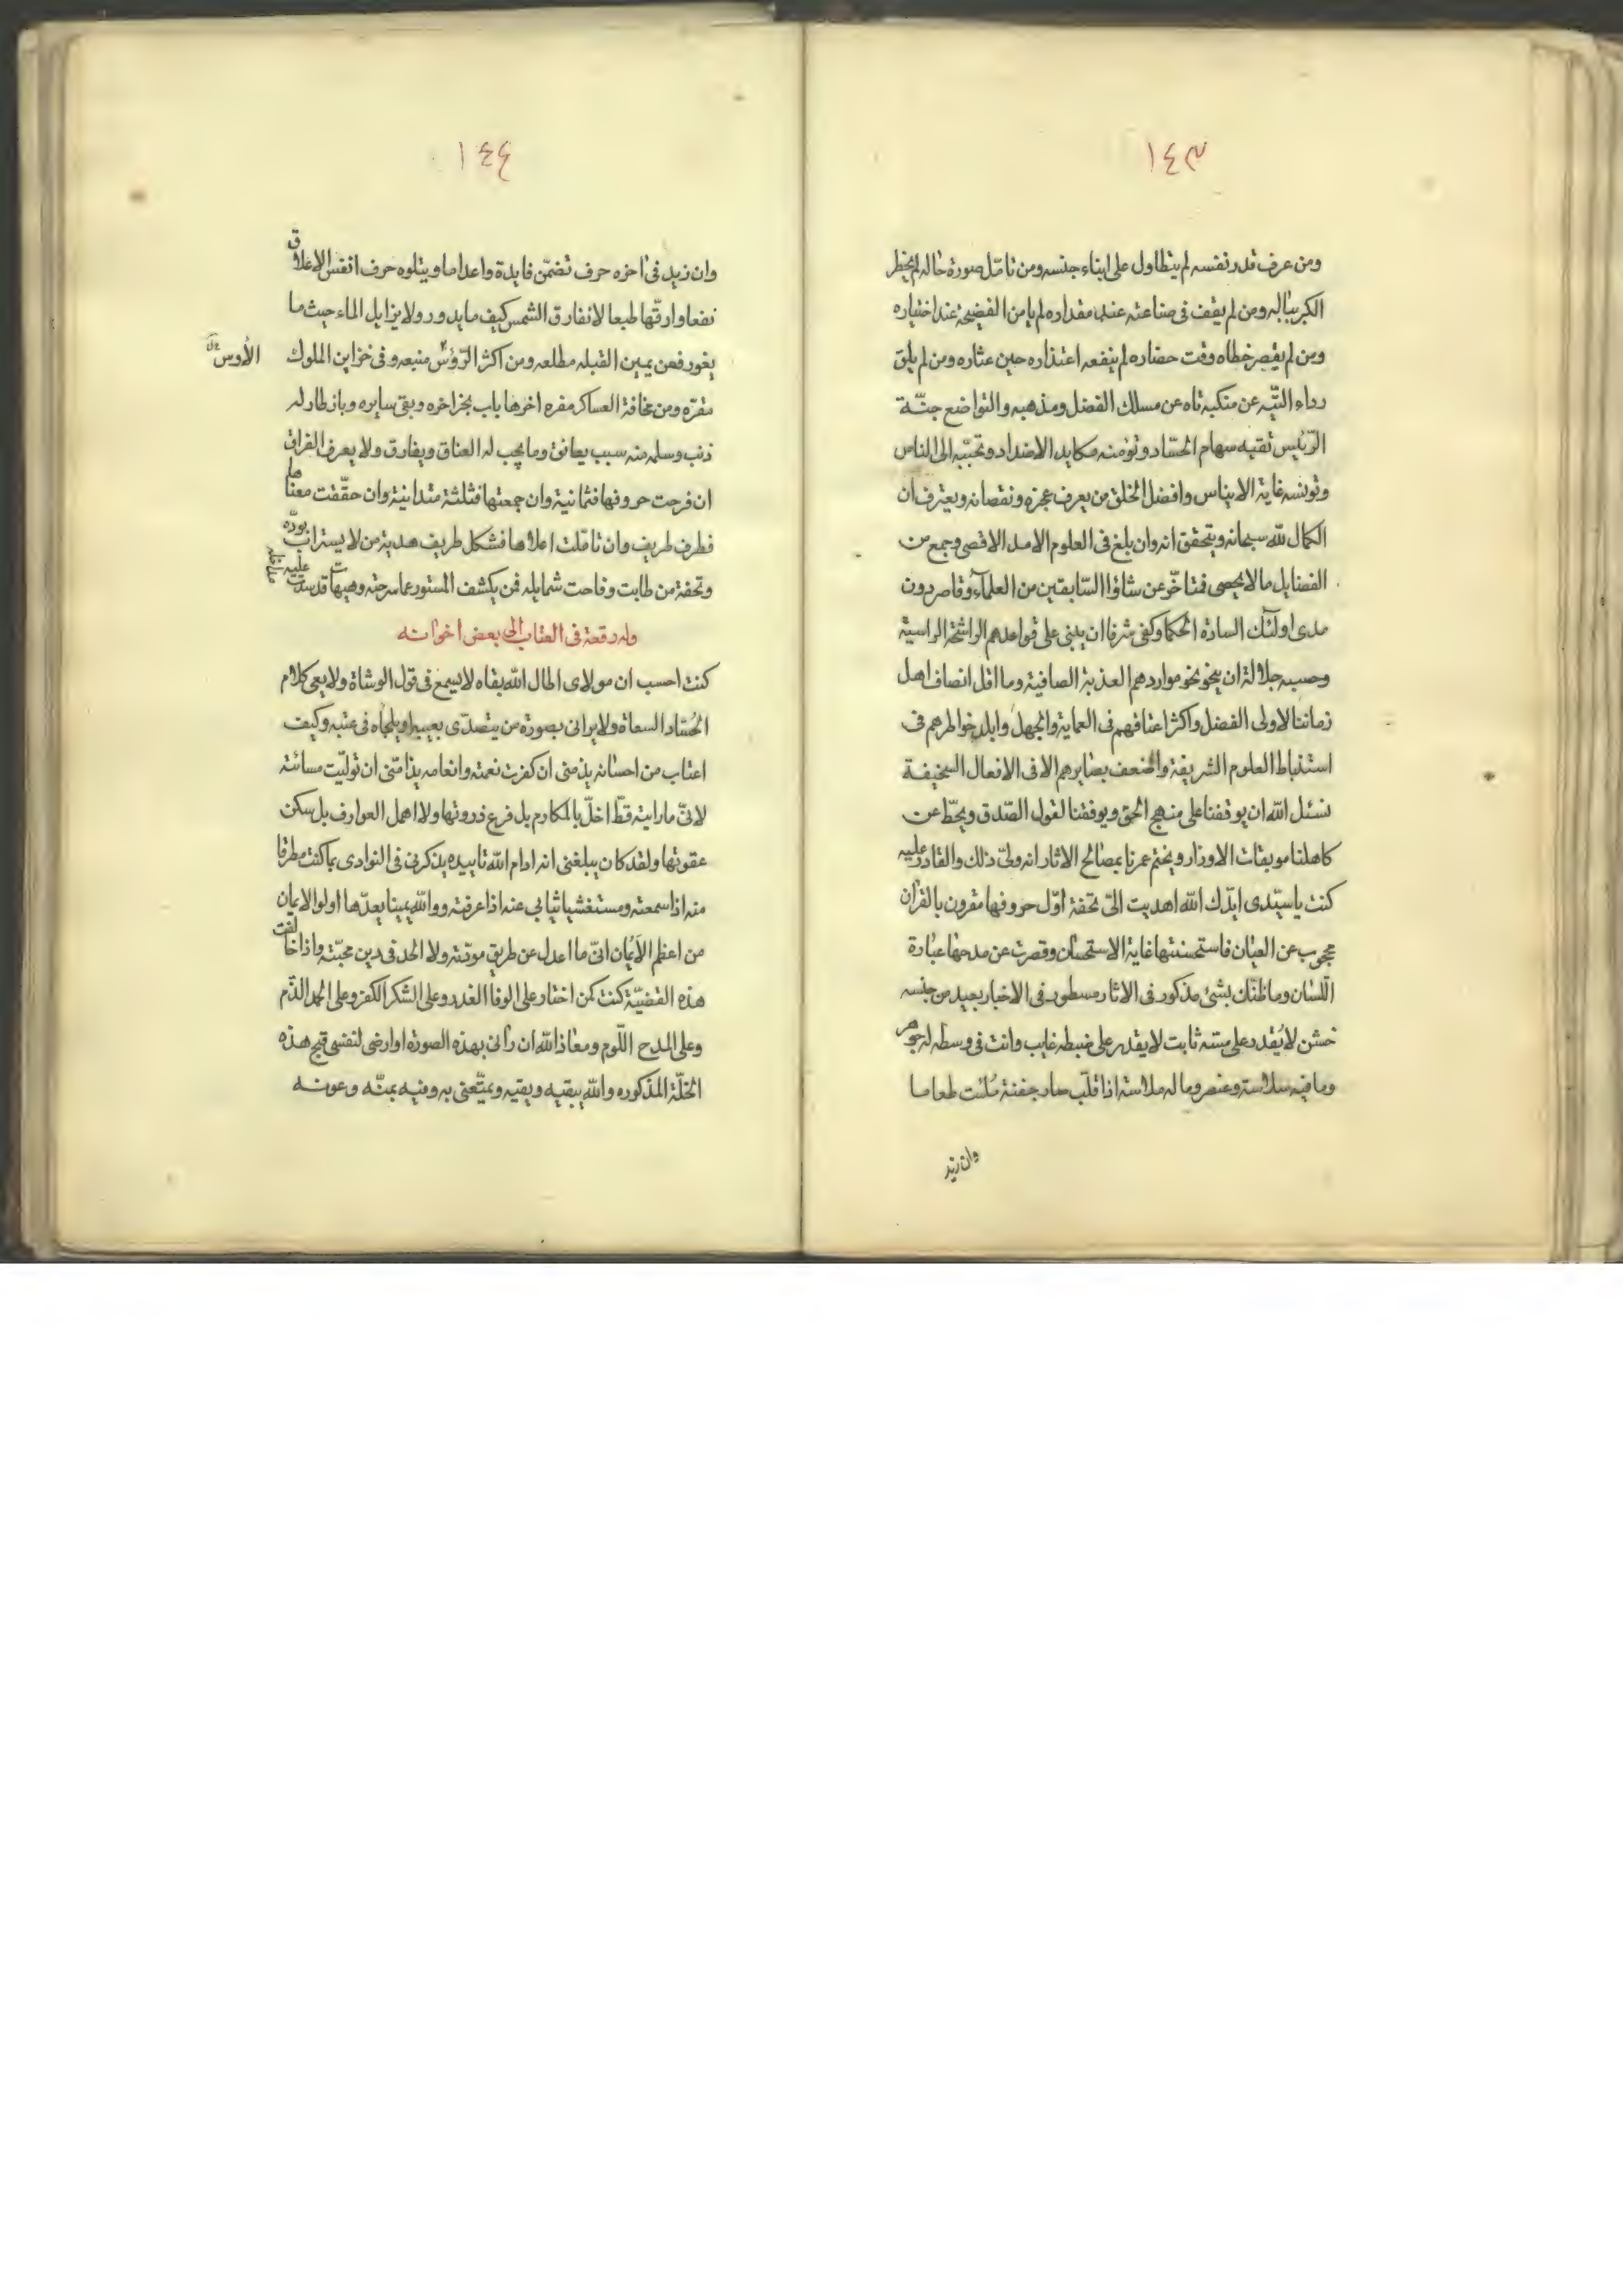 ١٤٣
ومن عرف قدر نفسه لم يتطاول على ابناء جنسه ومن تامّل صورة حاله لم يخطر
الكبر بباله ومن لم يقف فى صناعته عند مقداره لم يامن الفضيحة عند اختباره
ومن لم يقصر خطاه وقت حضاره لم ينفعه اعتذاره حين عثاره ومن لم يلق
رداء التّيه عن منكبه تاه عن مسلك الفضل ومذهبه والتواضع جنّة
الرّئيس تقيه سهام الحسّاد وتؤمنه مكايد الاضداد وتحبّبه الى الناس
وتونسه غاية الايناس وافضل الخلق من يعرف عجزه ونقصانه ويعترف ان
الكمال لله سبحانه ويتحقق انه وان بلغ فى العلوم الامد الاقصى وجمع من
الفضايل ما لا يحصى فمتاخّر عن شاؤا السّابقين من العلمآء وقاصر دون
مدى اولئك السادة الحكما وكفى شرفا ان يبنى على قواعدهم الراسخة الراسية
وحسبه جلالة ان ينحو نحو مواردهم العذبة الصافية وما اقل انصاف اهل
زماننا لاولى الفضل واكثر اعناقهم فى العماية والجهل وابلد خواطرهم فى
استنباط العلوم الشريفة واضعف بصايرهم الا فى الافعال السخيفة
نسئل الله ان يوقفنا على منهج الحق ويوفقنا لقول الصّدق ويحطّ عن
كاهلنا موبقات الاوزار ويختم عمرنا بمصالح الاثار انه ولىّ ذلك والقادر عليه
كنت ياسيّدى ايدّك الله اهديت الىّ تحفة اوّل حروفها مقرون بالقرآن
محجوب عن العيان فاستحسنتها غاية الاستحسان وقصرت عن مدحها عبارة
اللّسان وما ظنّك بشئ مذكور فى الاثار مسطور فى الاخبار بعيد من جنسه
خشن لا يُقدر على مسّه ثابت لا يقدر على ضبطه غايب وانت فى وسطه له جوهر
وما فيه سلاسة وعنصر وما له ملاسة اذا قلّب صار جفنة مُلئت طعاما
وان زيد
١٤٤
وان زيد فى اخره حرف تضمّن فايدة واعداما ويتلوه حرف انفس الاعلاق
نفعا وارقّها طبعا لا تفارق الشمس كيف ما يدور ولا يزايل الماء حيث ما
يغور فعن يمين القبله مطلعه ومن اكثر الرّؤس منبعه وفى خزاين الملوك
الأوس
مقرّه ومن مخافة العساكر مفره اخرها باب بجز اخره وبقى سايره وباز طار له
ذنب وسلم منه سبب يعانق وما يجب له العناق ويفارق ولا يعرف الفراق
ان فرجت حروفها فثمانية وان جمعتها فثلثة متدانية وان حقّقت معناها
فطرف ظريف وان تامّلت اعلاها فشكل طريف هدية من لا يستراب بودّه
وتحفة من طابت وفاحت شمايله فمن يكشف المستور عما سرحته وهيهات قد سدت عليه
وله رقعة فى العتاب الى بعض اخوانه
كنت احسب ان مولاى اطال الله بقاه لا يسمع فىّ قول الوشاة ولا يعى كلام
الحُسّاد السعاة ولا يرانى بصورة من يتصدّى بعيبه او يلجاه فى عتبه وكيف
اعتاب من احسانه يذمنى ان كفرت نعمته وانعامه يذامّنى ان تولّيت مسائته
لانّى ما رايته قطّ اخلّ بالمكارم بل فرع ذروتها ولا اهمل العوارف بل سكن
عقوتها ولقد كان يبلغنى انه ادام الله تاييده يذكرنى فى النوادى بما كنت مطرقا
منه اذا سمعته ومستغشيا ثيابى عنه اذا عرفته ووالله يمينا يعدّها اولوا الايمان
من اعظم الأيمان انىّ ما اعدل عن طريق مودّته ولا الحد فى دين محبّته واذا خالفت
هذه القضيّة كنت كمن اختار على الوفا الغدر وعلى الشكر الكفر وعلى الحمد الذّم
وعلى المدح اللّوم ومعاذ الله ان رآنى بهذه الصورة او ارضى لنفسى قبح هذه
الخلّة المذكوره والله يبقيه ويقيه ويمتّعنى به وفيه بمنّه وعونه